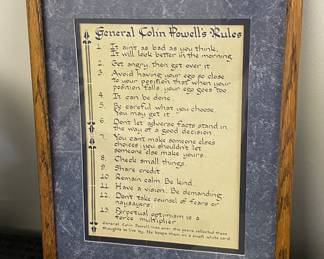 General Colin Powell's Rules
1. It aint as bad as you think.
It will look better in the morning.
2. Get angry, then get over it
3. Avoid having your ego so close
to your position that when your
position falls, your ego goes too.
4. It can be done.
5. Be careful what you choose.
You may get it
6. Dont let adverse facts stand in
the way of a good decision.
7. You cant make someone elses
choices you shouldn't let
someone else make yours
8. Check small things.
9. Share credit
10. Remain calm. Be kind.
11. Have a vision. Be demanding
12. Dont take counsel of fears or
naysayers.
13. Perpetual optimism is a
force multiplier.
General Colin Powell has over the years collected these
thoughts to live by. He keeps them on a small white card.